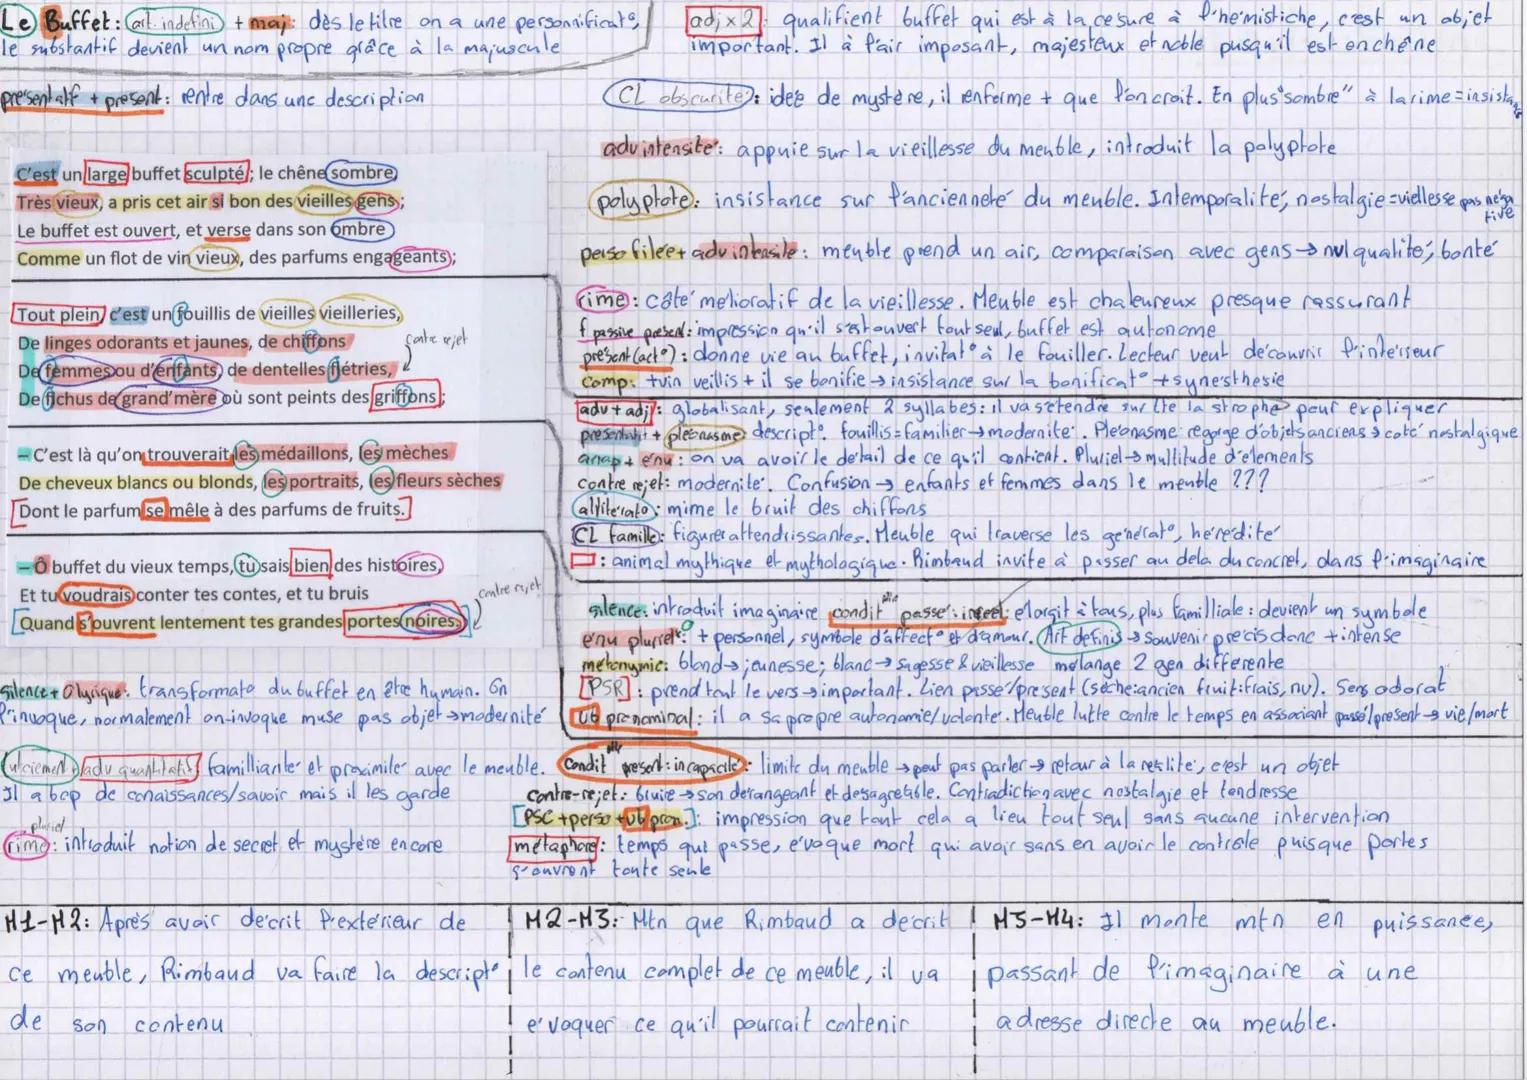 Le Buffet: art. indefini + maj: dès le titre on a une personnificat°,
le substantif devient un nom propre grâce à la majuscule
présentatif + present: rentre dans une description
adj x 2: qualifient buffet qui est à la cesure à l'hémistiche, c'est un objet
important. Il à l'air imposant, majesteux et noble pusqu'il est en chêne
CL obscurité: idée de mystère, il renferme + que l'on croit. En plus "sombre" à la rime = insistance
adv intensité: appuie sur la vieillesse du meuble, introduit la polyptote
polyptote: insistance sur l'ancienneté du meuble. Intemporalité, nostalgie = viellesse pas négative
perso filée + adv intensité: meuble prend un air, comparaison avec gens → nvl qualité, bonté
rime: côté mélioratif de la vieillesse. Meuble est chaleureux presque rassurant
f passive présent: impression qu'il s'est ouvert tout seul, buffet est autonome
présent (act°): donne vie au buffet, invitat° à le fouiller. Lecteur veut découvrir l'intérieur
comp: + vin veillis + il se bonifie → insistance sur la bonificat° + synesthesie
C'est un large buffet sculpté; le chêne sombre,
Très vieux, a pris cet air si bon des vieilles gens;
Le buffet est ouvert, et verse dans son ombre
Comme un flot de vin vieux, des parfums engageants;
Tout plein, c'est un fouillis de vieilles vieilleries,
De linges odorants et jaunes, de chiffons
contre rejet
De femmes ou d'enfants, de dentelles flétries,
De fichus de grand'mère où sont peints des griffons;
– C'est là qu'on trouverait les médaillons, les mèches
De cheveux blancs ou blonds, les portraits, les fleurs sèches
[Dont le parfum se mêle à des parfums de fruits.]
– Ô buffet du vieux temps, tu sais bien des histoires,
Et tu voudrais conter tes contes, et tu bruis
contre rejet
[Quand s'ouvrent lentement tes grandes portes noires.]
adv + adj: globalisant, seulement 2 syllabes: il va s'étendre sur tte la strophe pour expliquer
présentatif + pléonasme: descript°. fouillis = familier → modernité. Pléonasme: regorge d'objets anciens → coté nostalgique
anap + énu: on va avoir le détail de ce qu'il contient. Pluriel → multitude d'élements
contre rejet: modernité. Confusion → enfants et femmes dans le meuble ???
allitérat°: mime le bruit des chiffons
CL famille: figures attendrissantes. Meuble qui traverse les générat°, hérédité
: animal mythique et mythologique. Rimbaud invite à passer au delà du concret, dans l'imaginaire
silence: introduit imaginaire condit passé: irréel: élargit à tous, plus familliale: devient un symbole
énu pluriel: + personnel, symbole d'affect° et d'amour. Art définis → souvenir précis donc + intense
métonymie: blond → jeunesse; blanc → sagesse & vieillesse mélange 2 gen différente
[PSR]: prend tout le vers → important. Lien passé/présent (sèche: ancien fruit: frais, nv). Sens odorat
vb pronominal: il a sa propre autonomie/volonté. Meuble lutte contre le temps en associant passé/présent → vie/mort
silence + Ô lyrique: transformat° du buffet en être humain. On
l'invoque, normalement on invoque muse pas objet → modernité
tutoiement + adv quantitatif: familliarité et proximité avec le meuble.
Il a bcp de conaissances/savoir mais il les garde
rime pluriel: introduit notion de secret et mystère encore
Condit présent: incapacité: limite du meuble → peut pas parler → retour à la réalité, c'est un objet
contre-rejet: bruire → son dérangeant et désagréable. Contradiction avec nostalgie et tendresse
[PSC + perso + vb pron.]: impression que tout cela a lieu tout seul sans aucune intervention
métaphore: temps qui passe, évoque mort qui avoir sans en avoir le contrôle puisque portes
s'ouvrent toute seule
M1-M2: Après avoir décrit l'extérieur de
ce meuble, Rimbaud va faire la descript°
de son contenu
M2-M3: Mtn que Rimbaud a décrit
le contenu complet de ce meuble, il va
évoquer ce qu'il pourrait contenir
M3-M4: Il monte mtn en puissance,
passant de l'imaginaire à une
adresse directe au meuble.